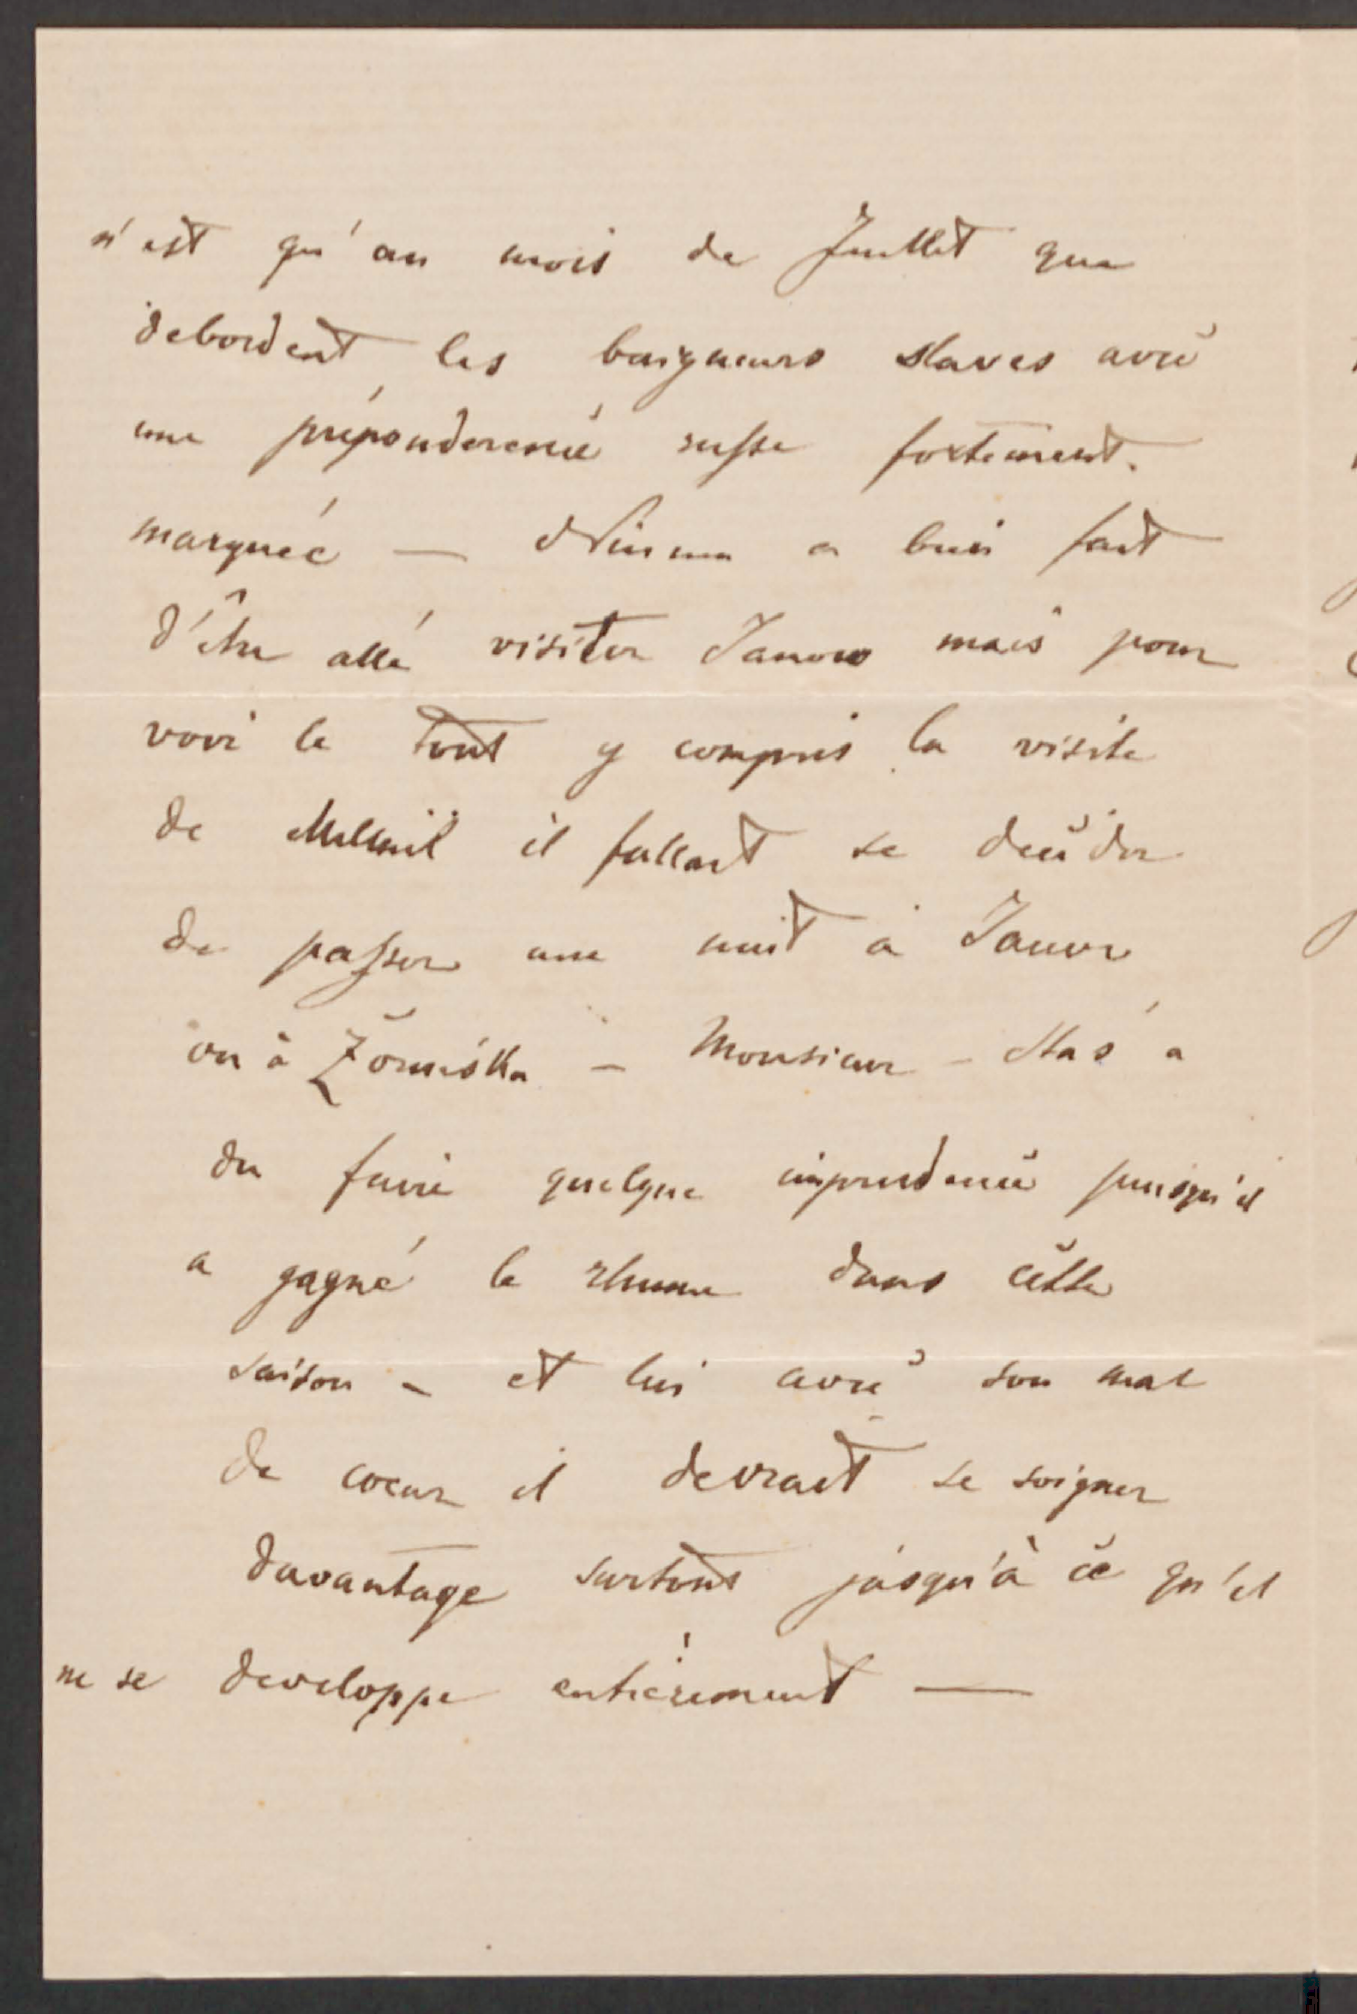 n'est qu'au mois de Juillet que
debordent les baigneurs slaves avec
une préponderence russe fortement
marquée — Ninun a bien fait
d'être allé visiter Janow mais pour
voir le tout y compris la visite
de il fallait se decider
de passer une nuit à Janow
ou à — Monsieur Staś a
du faire quelque imprudence puisqu'il
a gagné le rhume dans cette
saison — et lui avec son mal
de coeur il devrait se soigner
davantage surtout jusqu'à ce qu'il
ne se developpe entièrement —